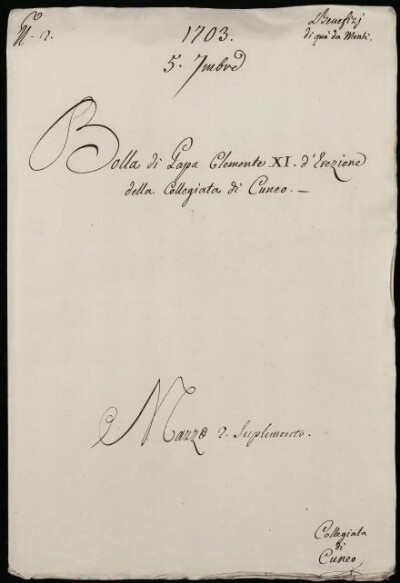 N. 2.
1703.
Benefizj
di quà da Monti.
5. 7mbre
Bolla di Papa Clemente XI. d'Erezione
della Collegiata di Cuneo. —
Mazzo 2. Suplemento.
Collegiata
di
Cuneo